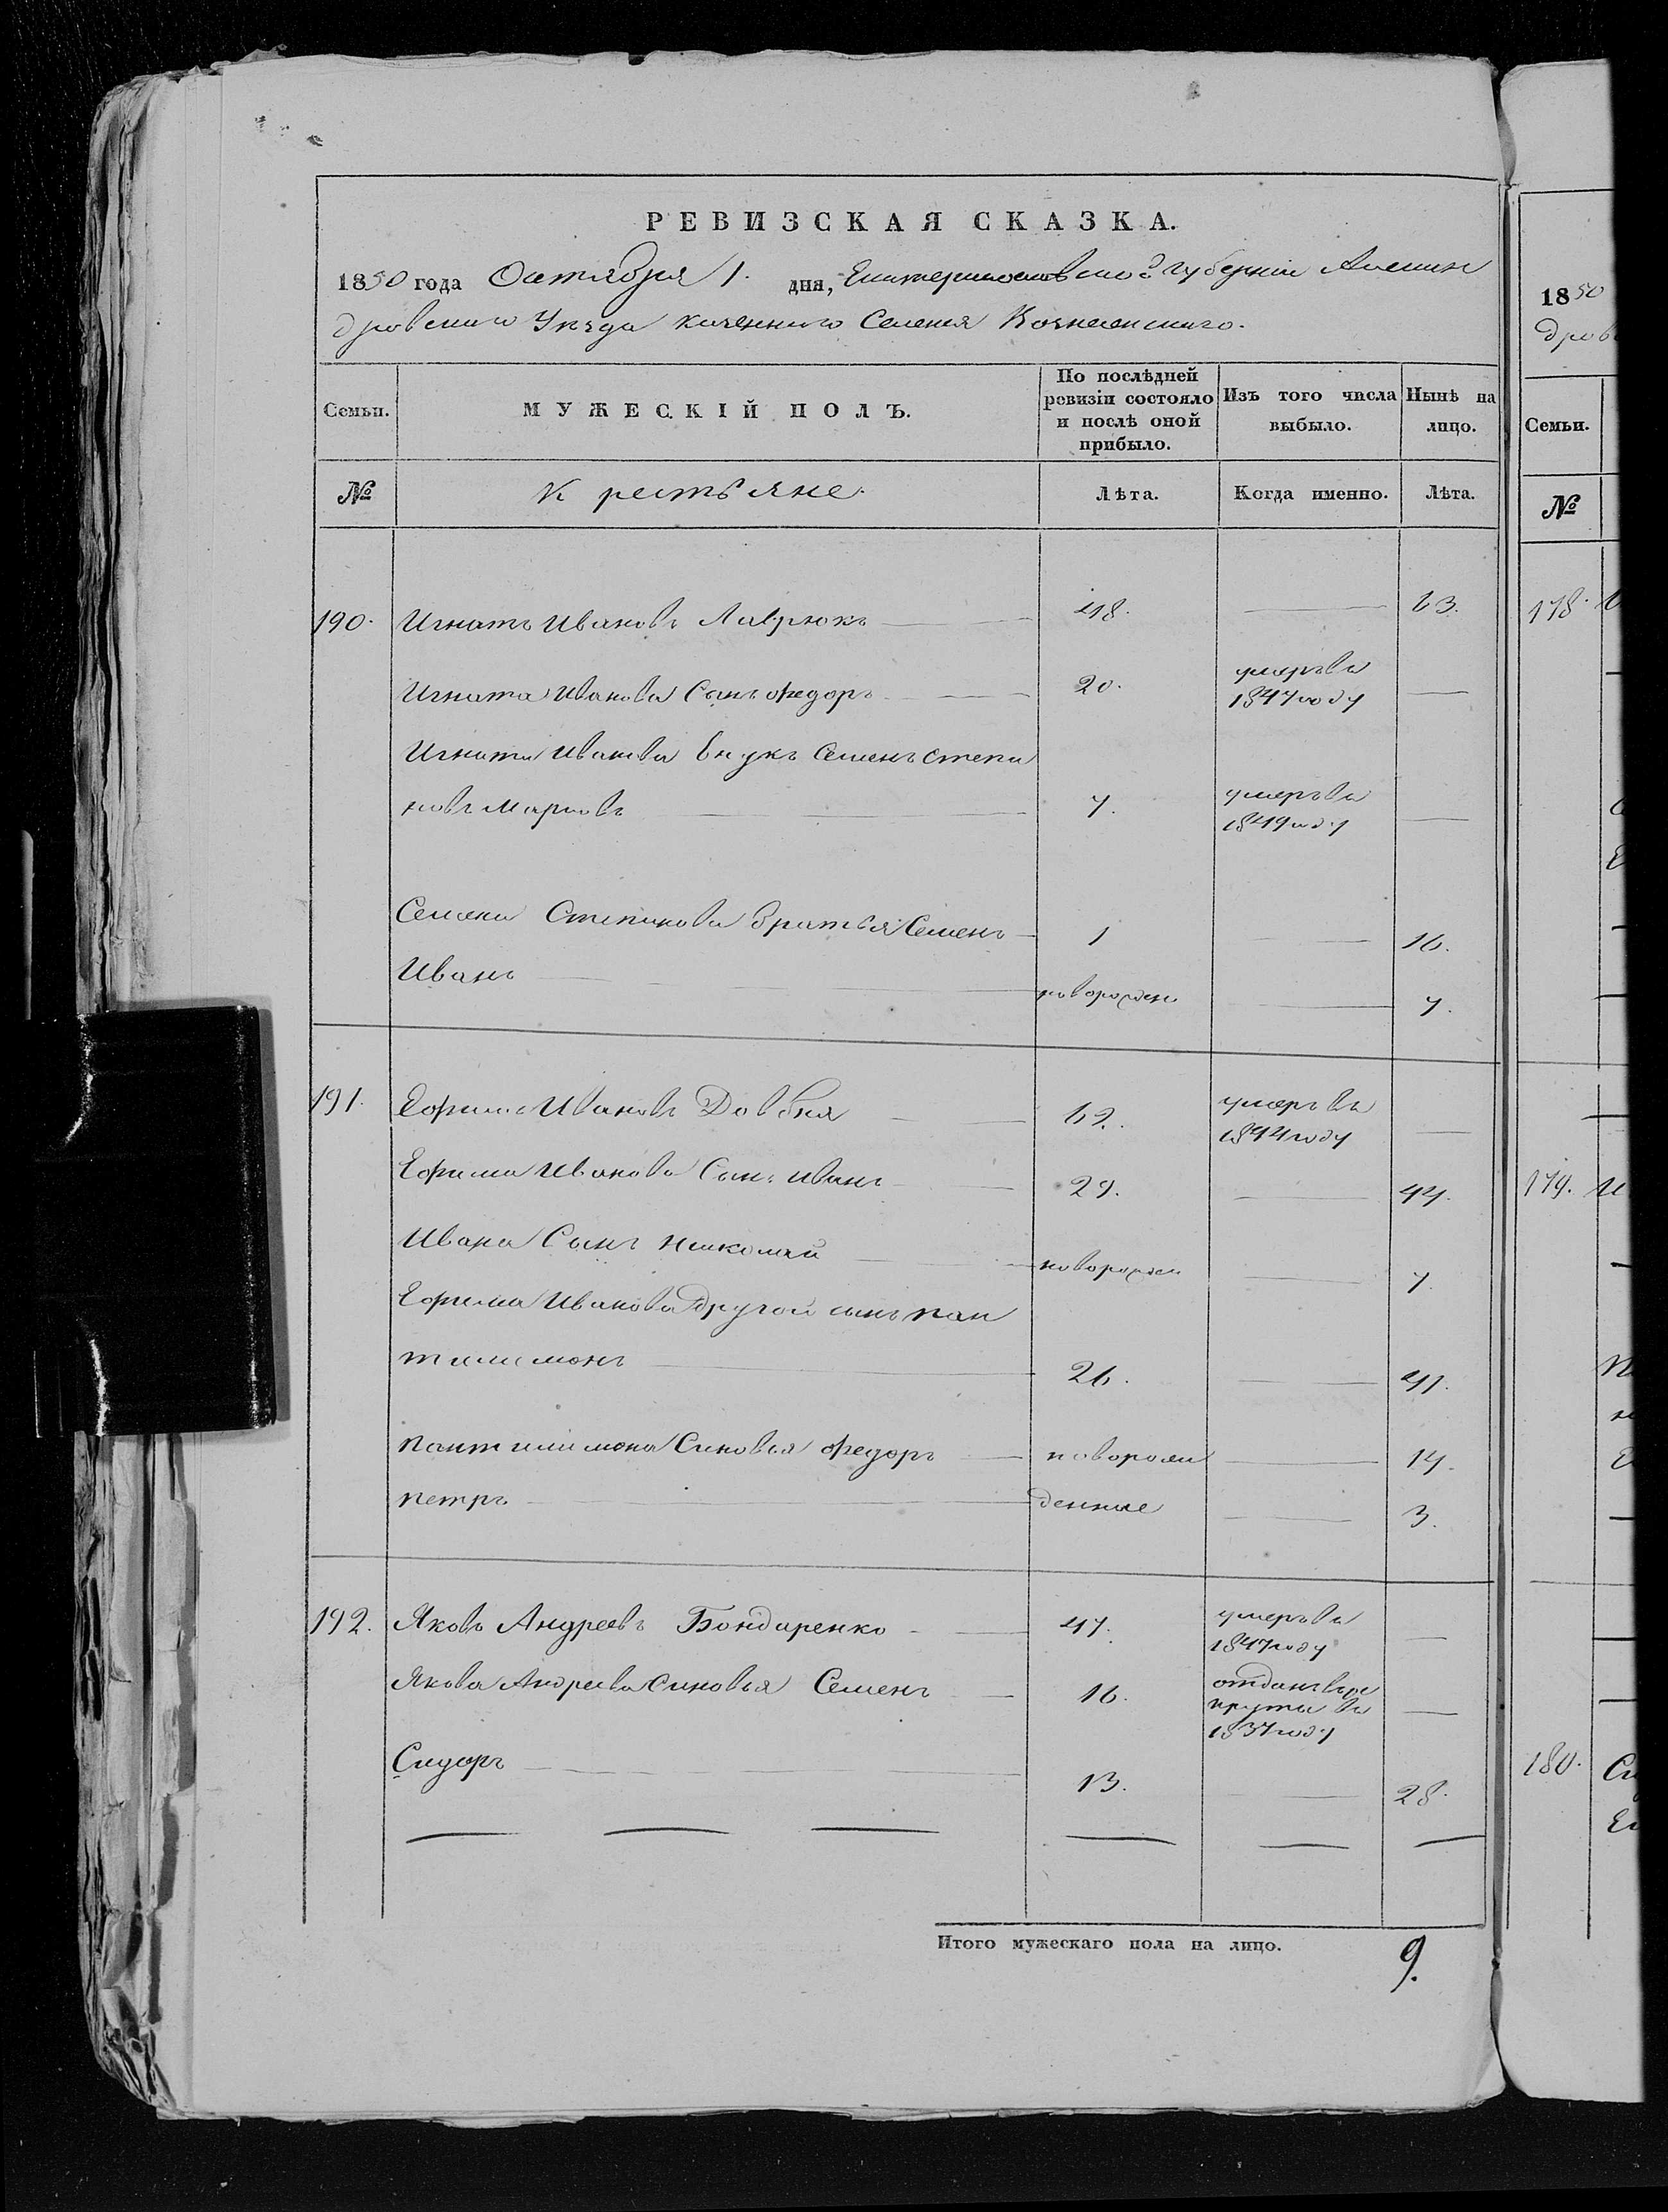 РЕВИЗСКАЯ СКАЗКА.
1850 года Октября 1. дня, Екатеринославской губернии Алексан
дровскаго Уѣзда казеннаго Селения Вознесенскаго.
Семьи.
МУЖЕСКІЙ ПОЛЪ.
По послѣдней ревизіи состояло и послѣ оной прибыло.
Изъ того числа выбыло.
Нынѣ на лицо.
№
Крестьяне.
Лѣта.
Когда именно.
Лѣта.
190. Игнатъ Ивановъ Лаврюкъ 48. 63.
Игната Иванова Сынъ Федоръ 20. умеръ въ 1847 году
Игната Иванова внукъ Семенъ Степа
новъ Марковъ 7. умеръ въ 1849 году
Семена Степанова братья Семенъ 1 16.
Иванъ новорожден 7.
191. Ефимъ Ивановъ Довбня 62. умеръ въ 1844 году
Ефима Иванова Сынъ Иванъ 29. 44.
Ивана Сынъ Николай новорожден 7.
Ефима Иванова другой сынъ пан
тилимонъ 26. 41.
пантилимона Синовья Федоръ новорож 14.
петръ денные 3.
192. Яковъ Андреевъ Бондаренко 47. умеръ въ 1847 году
Якова Андреева Синовья Семенъ 16. отданъ въ ре круты въ 1837 году
Сидоръ 13. 28.
Итого мужескаго пола на лицо. 9.
1850
дров
Семьи.
№
178.
179. И
180.